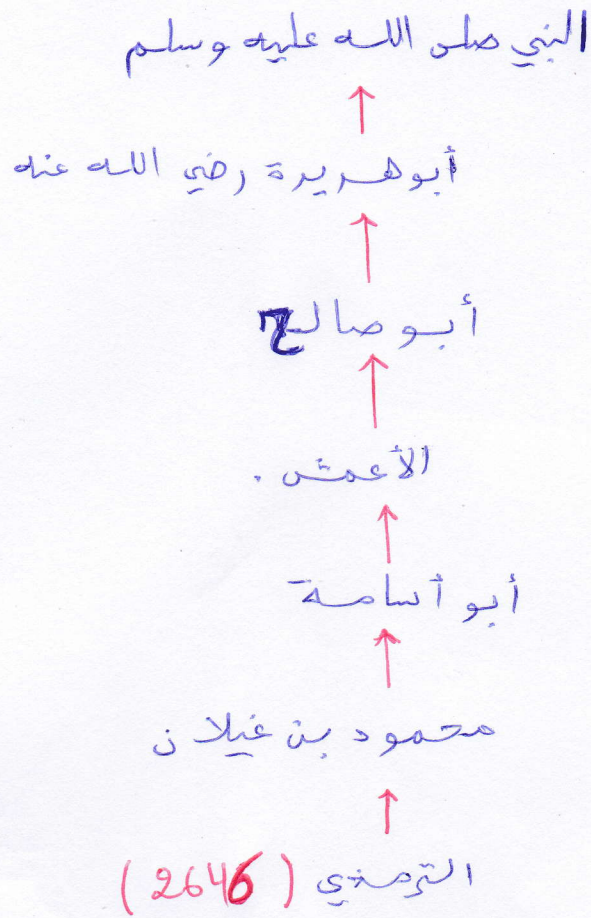 النبي صلى الله عليه وسلم
أبو هريرة رضي الله عنه
أبو صالح
الأعمش .
أبو أسامة
محمود بن غيلان
الترمذي (2646)